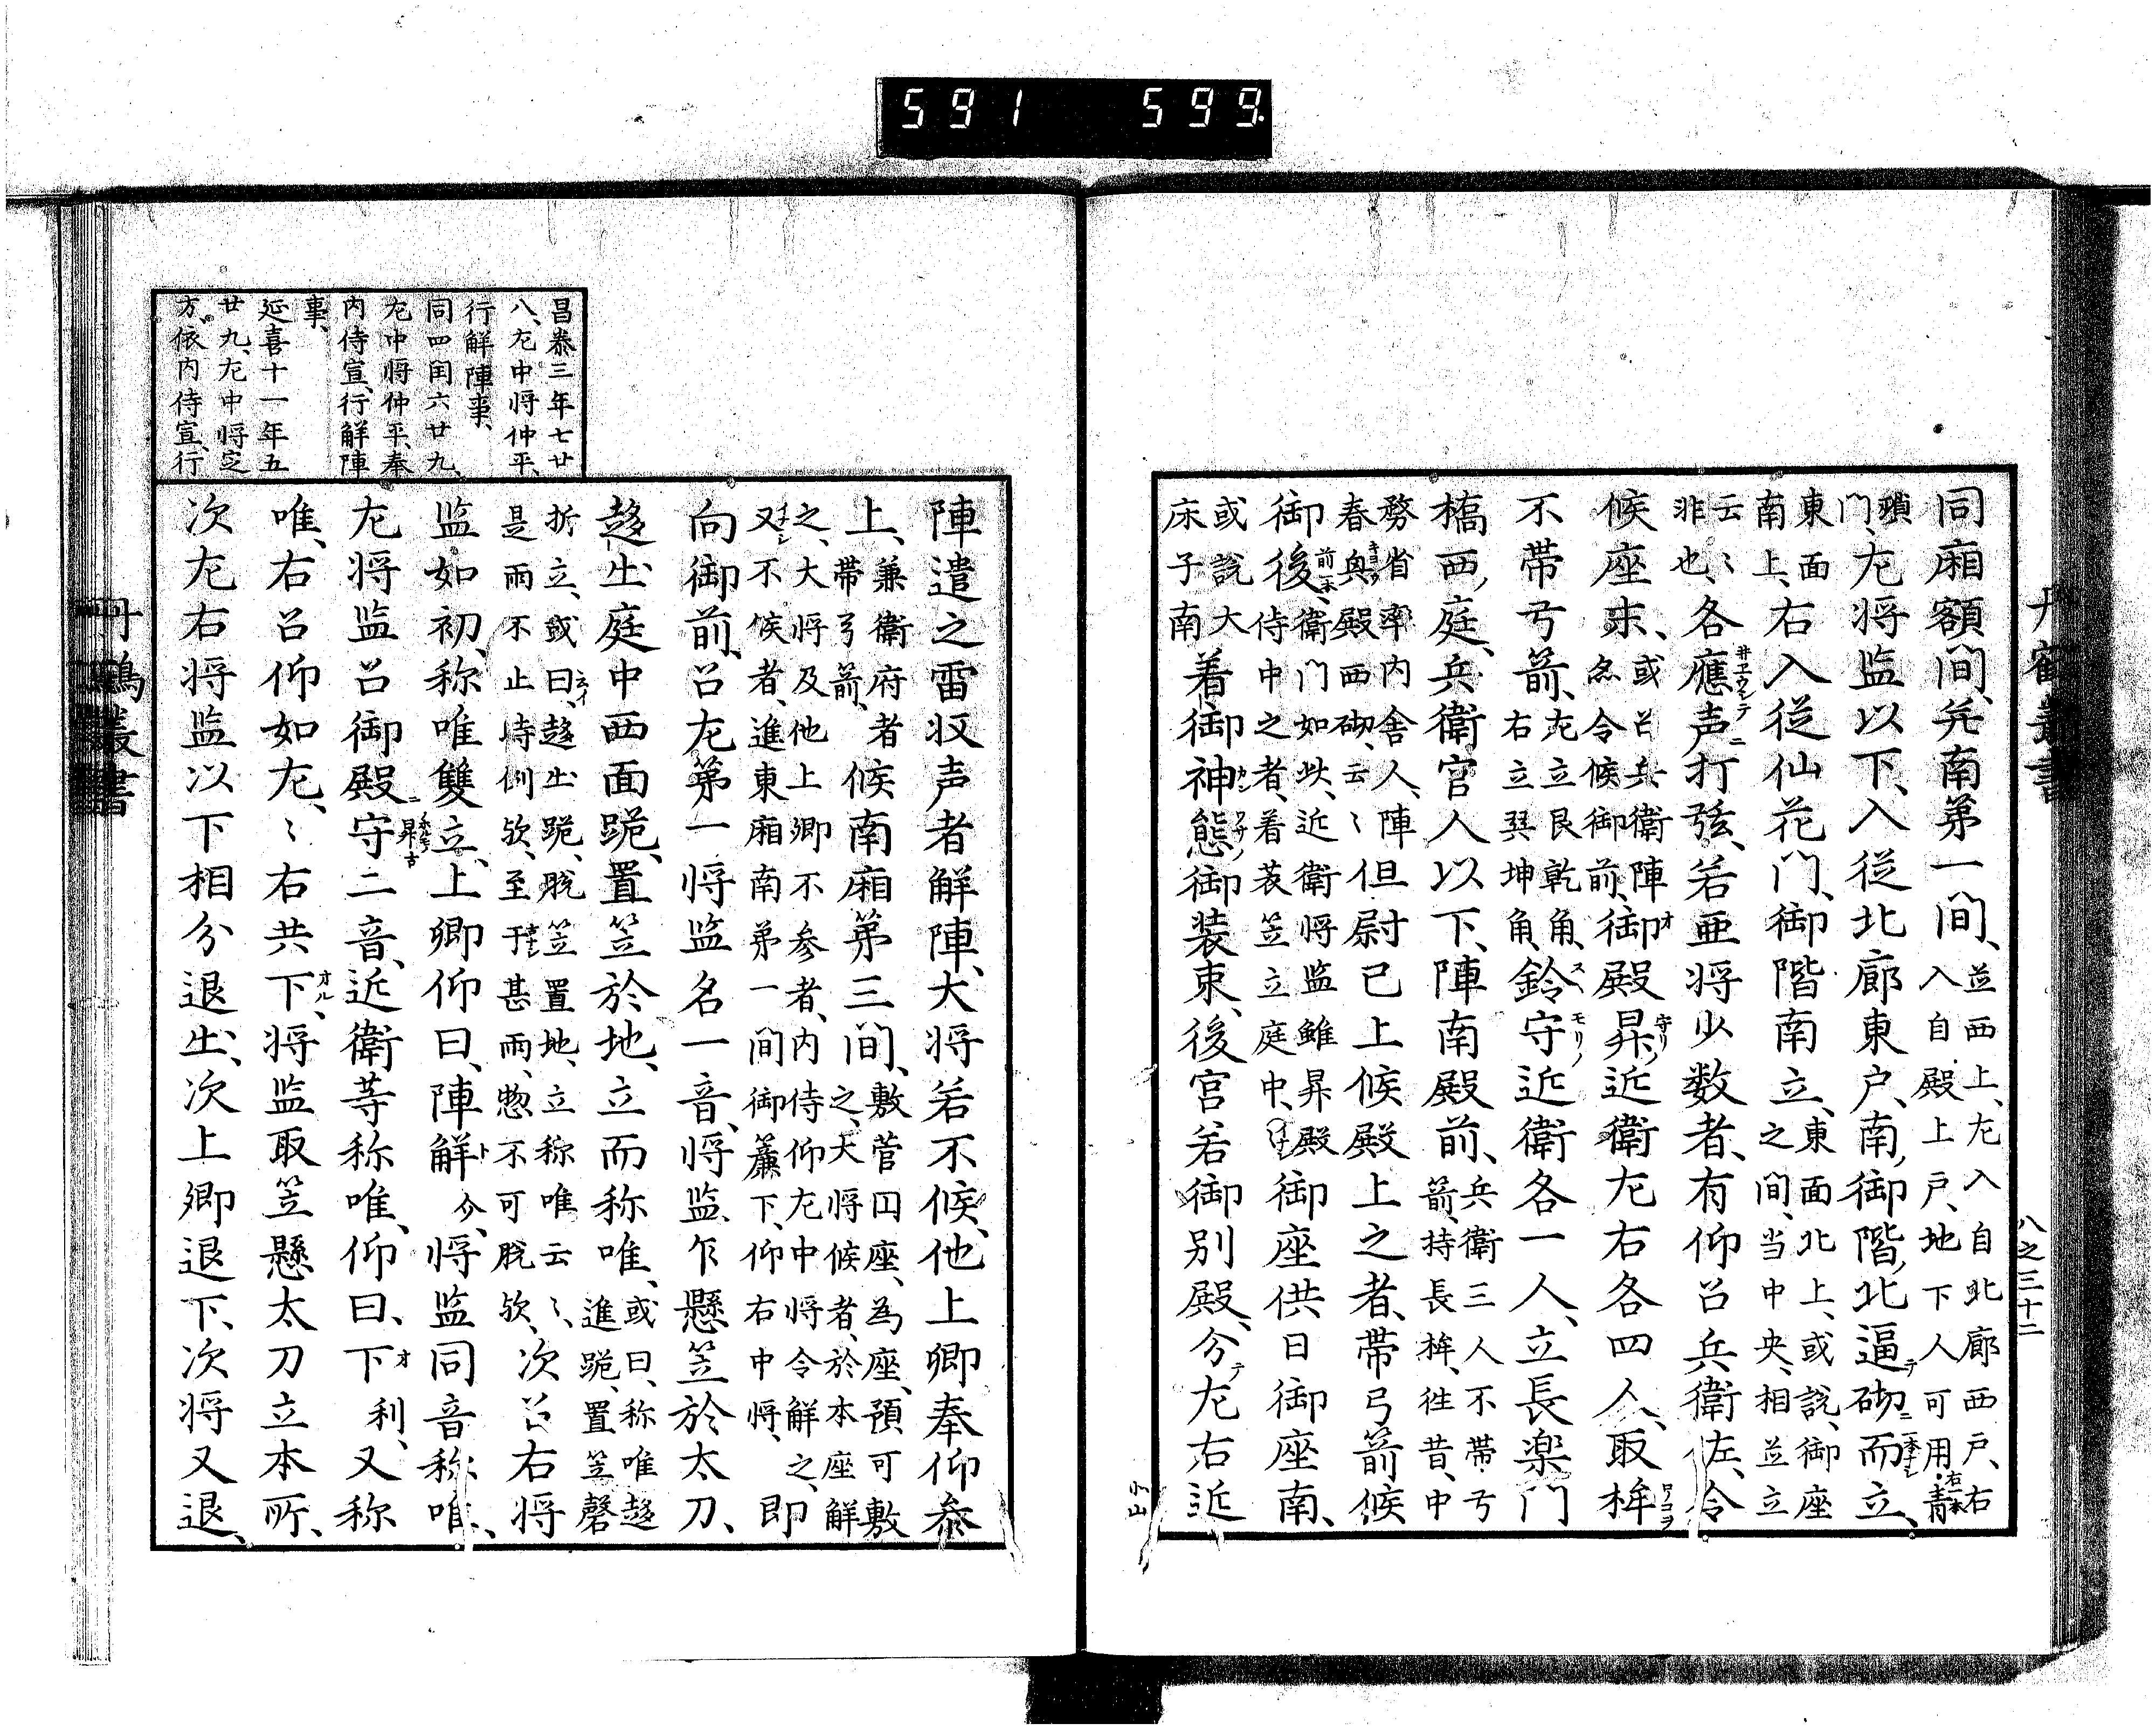 591 599.
丹鶴叢書
八之三十二
同廂額間、并南第一間、並西上、左入自北廊西戸、右入自殿上戸、地下人可用青
瑣門、左将監以下、入従北廊東戸、南御階、北逼砌而立、
東面南上、右入従仙花門、御階南立、東面北上、或説、御座之間、当中央、相並立
云〻非也、各應声打弦、若亜将少数者、有仰召兵衛佐、令
候座末、或召兵衛陣令候御前、御殿昇近衛左右各四人、取桙
不帯弓箭、左立艮乾角、右立巽坤角、鈴守近衛各一人、立長楽門
橋西、庭、兵衛官人以下、陣南殿前、兵衛三人不帯弓箭、持長桙、徃昔、中
務省率内舎人、陣春興殿西砌、云〻但尉已上候殿上之者、帯弓箭候
御後、衛門如此、近衛将監雖昇殿侍中之者、着蓑笠立庭中、御座供日御座南、
或説大床子南着御神態御装束、後宮若御別殿、分左右近
陣遣之雷収声者解陣、大将若不候、他上卿奉仰参
上、兼衛府者帯弓箭、候南廂第三間、敷菅円座、為座、預可敷之、大将候者、於本座解
之、大将及他上卿不参者、内侍仰左中将令解之、又不候者、進東廂南第一間御簾下、仰右中将、即
向御前、召左第一将監名一音、将監乍懸笠於太刀、
趍出庭中西面跪、置笠於地、立而称唯、或曰、称唯趍進跪、置笠磬
折立、或曰、趍出跪、脱笠置地、立称唯云〻、是雨不止時例欤、至于甚雨、惣不可脱欤、次召右将
監如初、称唯雙立、上卿仰曰、陣解今、将監同音称唯、
左将監召御殿守二音、近衛等称唯、仰曰、下利、又称
唯、右召仰如左、〻右共下、将監取笠懸太刀立本所、
次左右将監以下相分退出、次上卿退下、次将又退、
昌泰三年七廿
八、左中将仲平、
行解陣事、
同四閏六廿九、
左中将仲平、奉
内侍宣、行解陣
事、
延喜十一年五
廿九、左中将定
方、依内侍宣、行
丹鶴叢書